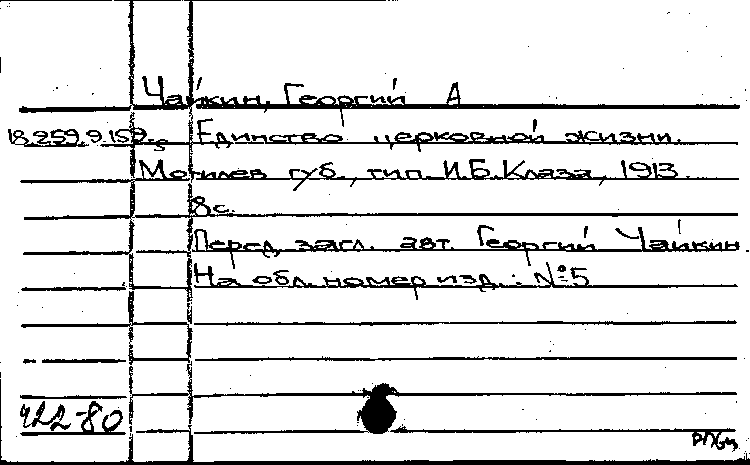 Чайкин, Георгий А
18.259.9.159. Единство церковной жизни.
Могилев губ., тип. И.Б. Клаза, 1913.
8 с.
Перед загл. авт. Георгий Чайкин.
На обл. номер изд.: №5
422-80